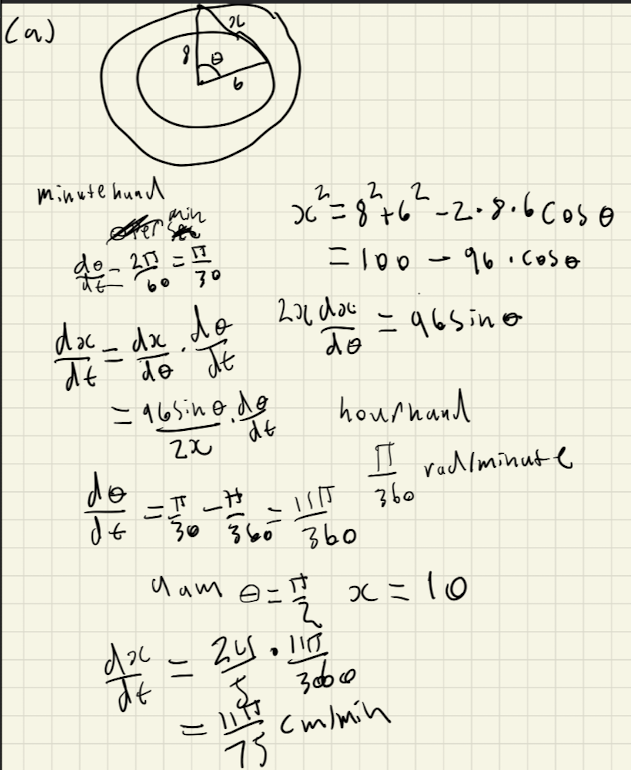 (a)
x
8
θ
6
minutehand
min
dθ/dt = 2π/60 = π/30
x² = 8² + 6² - 2·8·6 cos θ
= 100 - 96·cosθ
2x dx/dθ = 96 sin θ
dx/dt = dx/dθ · dθ/dt
= 96 sin θ/2x · dθ/dt
hourhand
π/360 rad/minute
dθ/dt = π/30 - π/360 = 11π/360
9am θ = π/2 x = 10
dx/dt = 24/5 · 11π/360
= 11π/75 cm/min